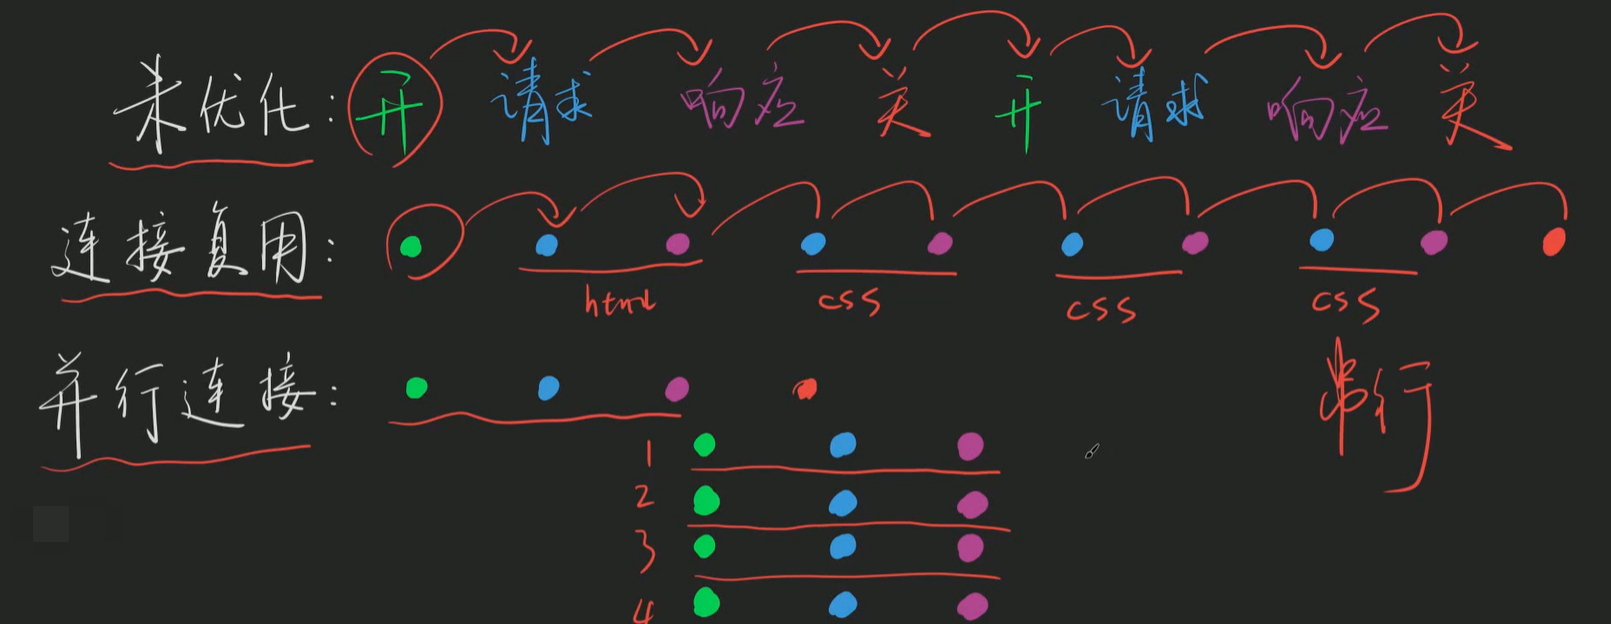 未优化: 开 请求 响应 关 开 请求 响应 关
连接复用:
html css css css
并行连接: 串行
1
2
3
4